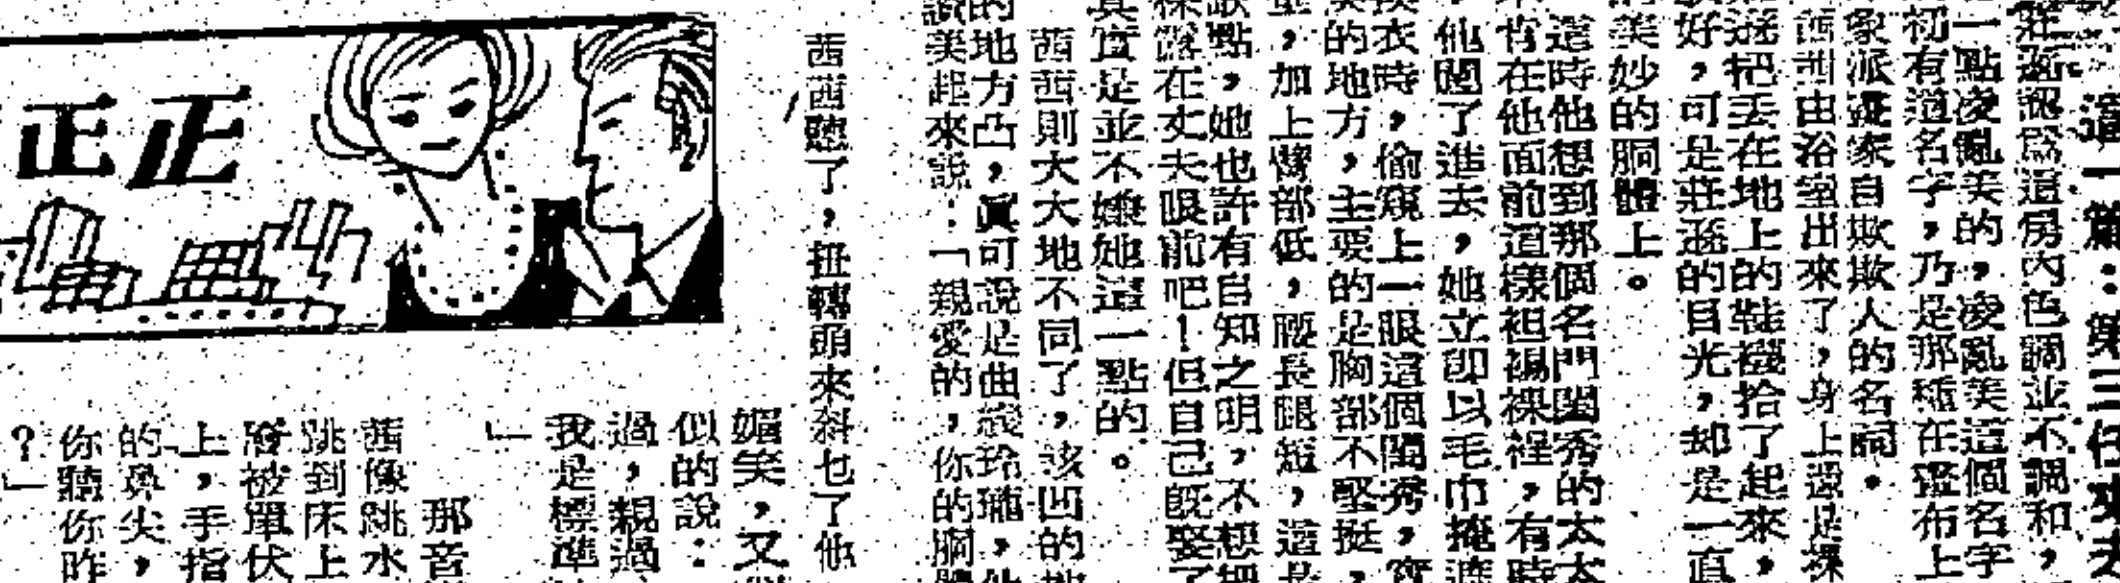 這一篇：第三任丈夫
莊遜認為這房內色調並不調和，
一點凌亂美的，凌亂美這個名字
初有道名字，乃是那種在畫布上
象派畫家自欺欺人的名詞。
茜茜由浴室出來了，身上還是裸
遜把丟在地上的鞋襪拾了起來，
好，可是莊遜的目光，却是一直
美妙的胴體上。
這時他想到那個名門閨秀的太太
肯在他面前這樣袒裼裸裎，有時
，他闖了進去，她立卽以毛巾掩遮
換衣時，偷窺上一眼這個閨秀，實
美的地方，主要的是胸部不堅挺，
，加上臀部低，腰長腿短，這是
缺點，她也許有自知之明，不想把
裸露在丈夫眼前吧！但自己既娶了
其實是並不嫌她這一點的。
茜西則大大地不同了，該凹的地
的地方凸，眞可說是曲綫玲瓏，他
讚美起來說：「親愛的，你的胴體
茜茜聽了，扭轉頭來斜乜了他
正正
媚笑，又
似的說：
過，親過
我是標準
」
那音
茜像跳水
跳到床上
浴被單伏
上，手指
的鼻尖，
你聽你昨
？」